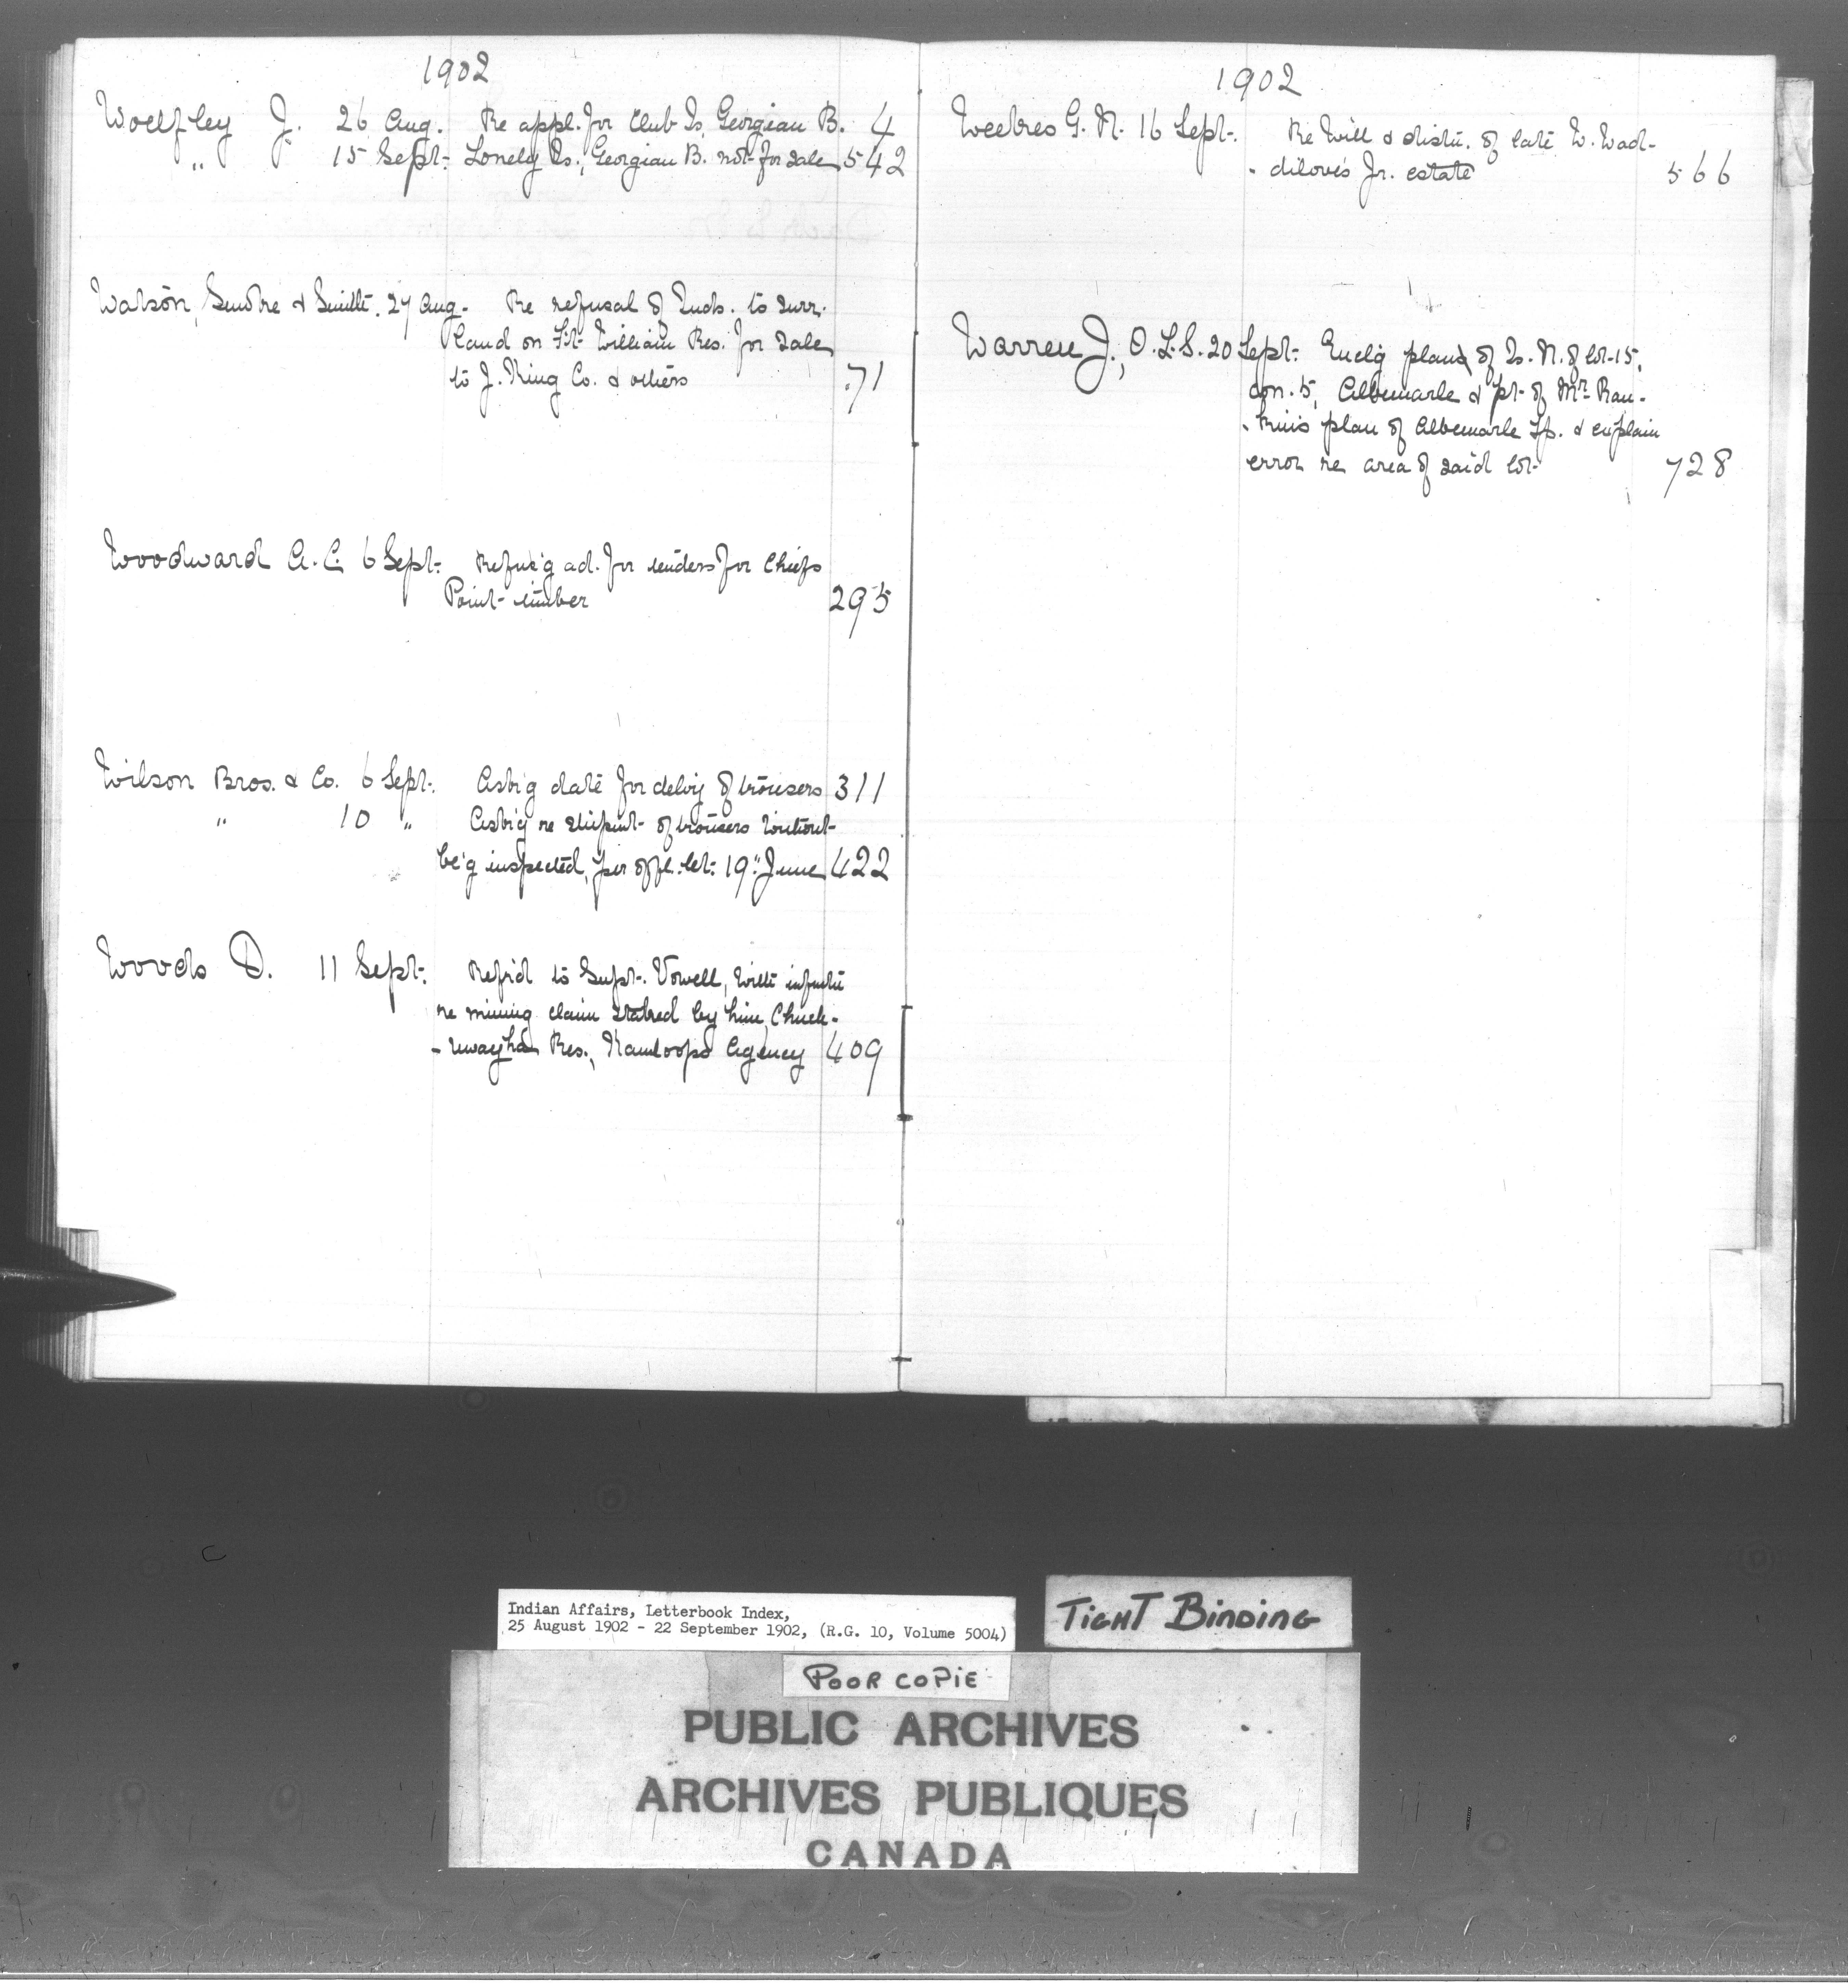 1902
Woelfley J. 26 Aug. Re appl. for Club Is, Georgian B. 4
" " 15 Sept. Lonely Is., Georgian B. not for sale 542
Watson, Smoke & Smith. 27 Aug. Re refusal of Inds. to surr.
land on Ft. William Res. for sale
to J. King Co. & others 71
Woodward A. C. 6 Sept. Refus'g ad. for tenders for Chiefs
Point timber 295
Wilson Bros. & Co. 6 Sept. Ask'g date for deliv'y of trousers 311
" 10 " Ask'g re shipmt. of trousers without
be'g inspected, per offl. let. 19" June 422
Woods D. 11 Sept. Ref'd to Supt. Vowell, with
re mining claim staked by him, Chuck-
-uwayha Res., Kamloops Agency 409
1902
Weekes G. N. 16 Sept. Re Will & distn. of late W. Wad-
-dilove's Jr. estate 566
Warren J., O.L.S. 20 Sept. Encl'g plan of Is. N. of lot 15,
con. 5, Albemarle & pt. of Mr. Ran-
-kin's plan of Albemarle Tp. & explain
error re area of said lot 728
Indian Affairs, Letterbook Index,
25 August 1902 - 22 September 1902, (R.G. 10, Volume 5004)
TIGHT BINDING
POOR COPIE
PUBLIC ARCHIVES
ARCHIVES PUBLIQUES
CANADA